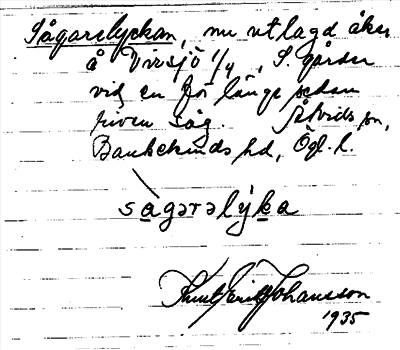 Sågarelyckan, nu utlagd åker
å Virsjö 1/4, S. gården
vid en för länge sedan
riven såg. Åtvids sn,
Bankekinds hd, Ögl. l.
sagərəlỳka
Knut Eric Johansson
1935